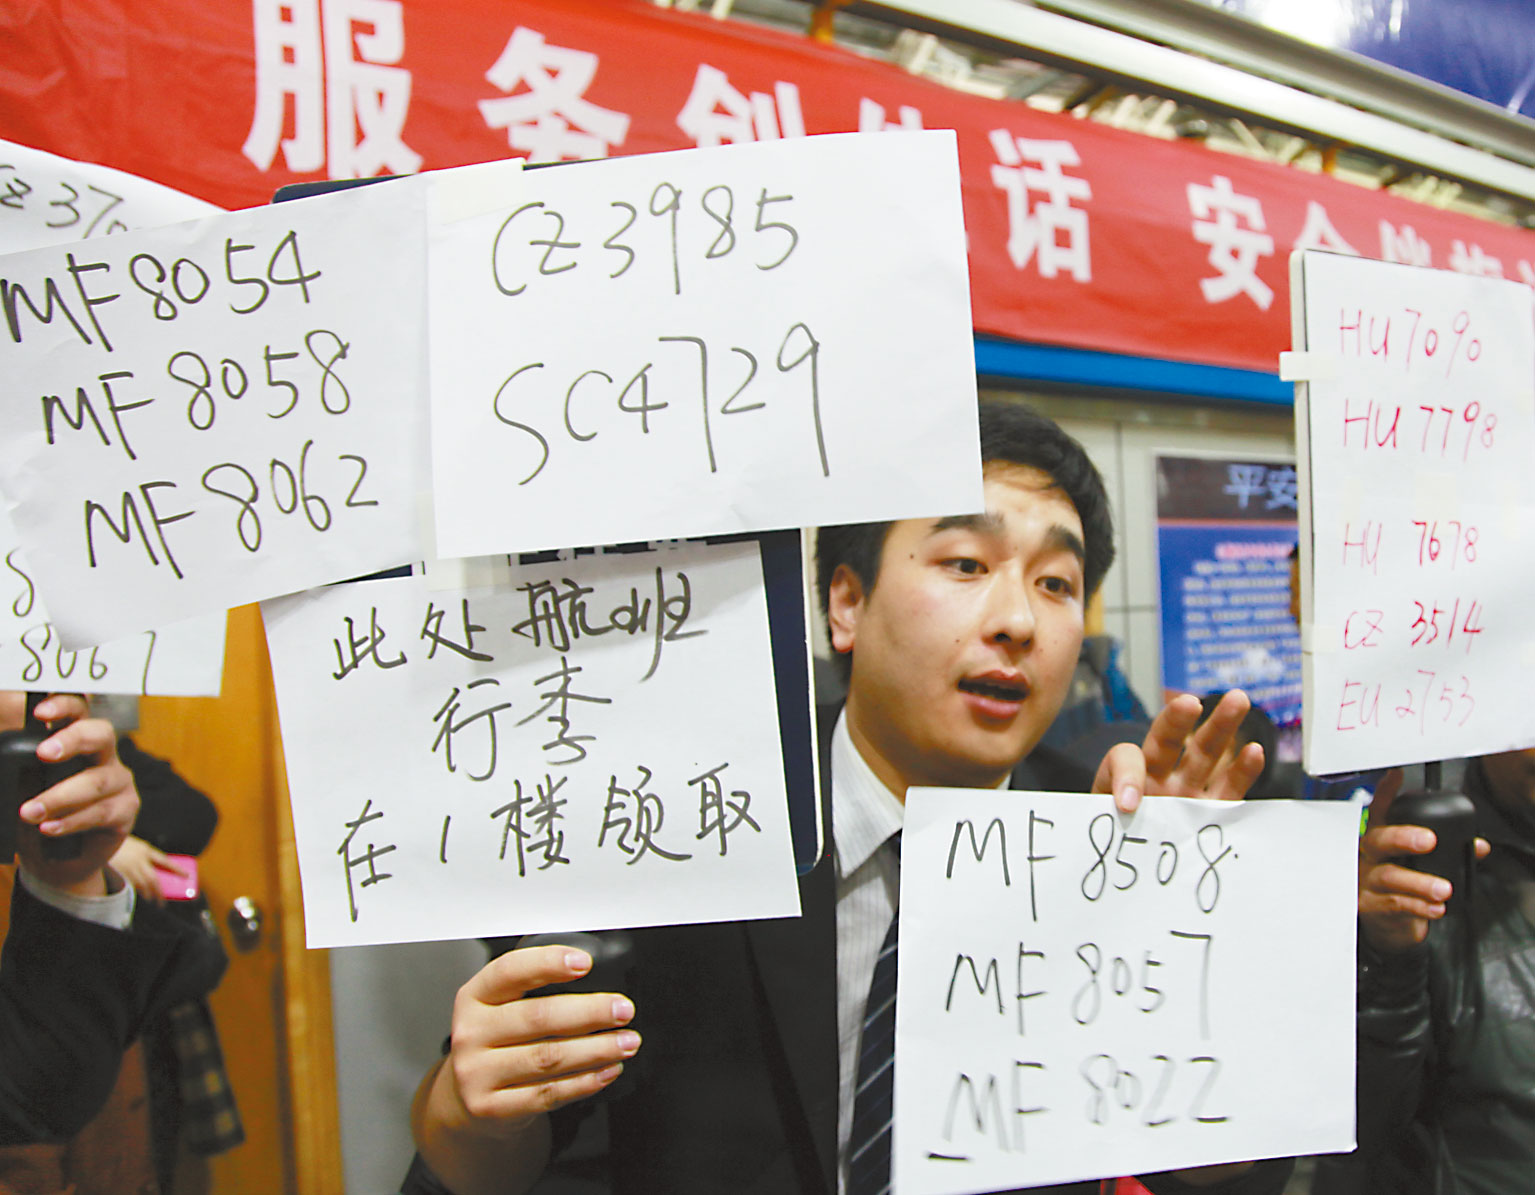 服务创 话 安全
CZ 37
MF 8054
MF 8058
MF 8062
8067
CZ 3985
SC4729
此处航班
行李
在1楼领取
平安
HU 7090
HU 7798
HU 7678
CZ 3514
EU 2753
MF 8508
MF 8057
MF 8022